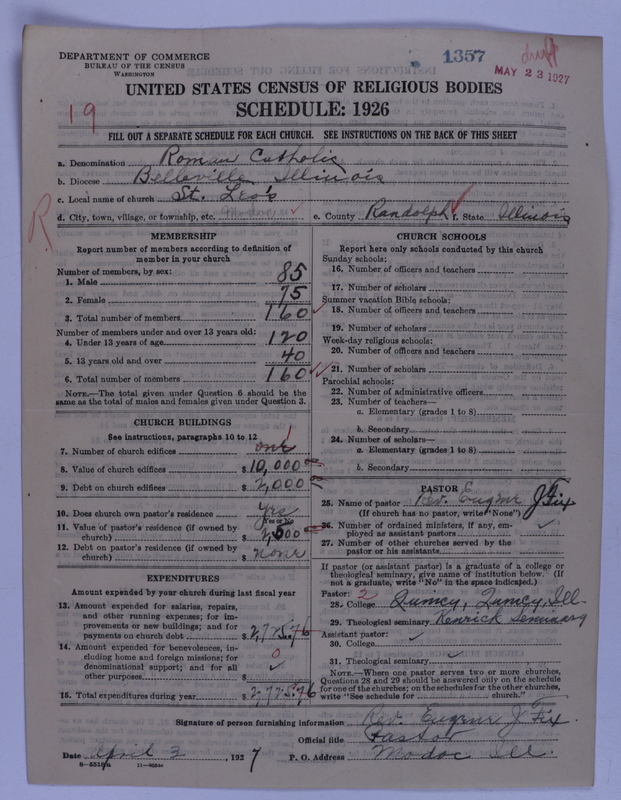 DEPARTMENT OF COMMERCE
BUREAU OF THE CENSUS
WASHINGTON
1357
MAY 23 1927
UNITED STATES CENSUS OF RELIGIOUS BODIES
19
SCHEDULE: 1926
FILL OUT A SEPARATE SCHEDULE FOR EACH CHURCH. SEE INSTRUCTIONS ON THE BACK OF THIS SHEET
a. Denomination Roman Catholic
b. Diocese Belleville Illinois
c. Local name of church St. Leo's
d. City, town, village, or township, etc. Modoc e. County Randolph f. State Illinois
R
MEMBERSHIP
Report number of members according to definition of
member in your church
Number of members, by sex:
1. Male 85
2. Female 75
3. Total number of members 160
Number of members under and over 13 years old:
4. Under 13 years of age 120
5. 13 years old and over 40
6. Total number of members 160
NOTE.—The total given under Question 6 should be
same as the total of males and females given under Question 3.
CHURCH BUILDINGS
See instructions, paragraphs 10 to 12
7. Number of church edifices one
8. Value of church edifices $ 10,000
9. Debt on church edifices $ 2,000
10. Does church own pastor's residence yes
Yes or No
11. Value of pastor's residence (if owned by
church) $ 2,500
12. Debt on pastor's residence (if owned by
church) $ none
EXPENDITURES
Amount expended by your church during last fiscal year
13. Amount expended for salaries, repairs,
and other running expenses; for im-
provements or new buildings; and for
payments on church debt $
14. Amount expended for benevolences, in-
cluding home and foreign missions; for
denominational support; and for all
other purposes $ 0
15. Total expenditures during year $
CHURCH SCHOOLS
Report here only schools conducted by this church
Sunday schools:
16. Number of officers and teachers
17. Number of scholars
Summer vacation Bible schools:
18. Number of officers and teachers
19. Number of scholars
Week-day religious schools:
20. Number of officers and teachers
21. Number of scholars
Parochial schools:
22. Number of administrative officers
23. Number of teachers—
a. Elementary (grades 1 to 8)
b. Secondary
24. Number of scholars—
a. Elementary (grades 1 to 8)
b. Secondary
PASTOR
25. Name of pastor Rev. Eugene J Fix
(If church has no pastor, write "None")
26. Number of ordained ministers, if any, em-
ployed as assistant pastors
27. Number of other churches served by the
pastor or his assistants
If pastor (or assistant pastor) is a graduate of a college or
theological seminary, give name of institution below. (If
not a graduate, write "No" in the space indicated.)
Pastor: 2
28. College Quincy, Quincy, Ill.
29. Theological seminary Kenrick Seminary
Assistant pastor:
30. College
31. Theological seminary
NOTE.—Where one pastor serves two or more churches,
Questions 28 and 29 should be answered only on the schedule
for one of the churches; on the schedules for the other churches,
write "See schedule for church."
Signature of person furnishing information Rev. Eugene J. Fix
Official title Pastor
Date April 2, 1927 P. O. Address Modoc Ill.
8—5518a 11—